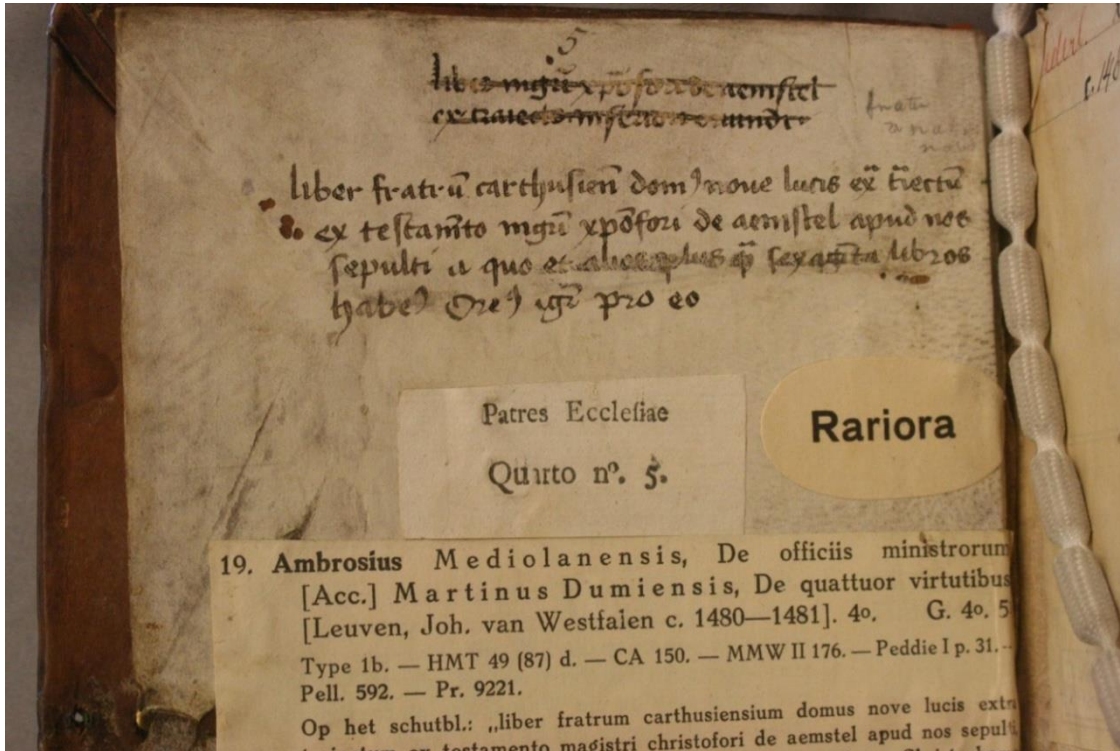 5
liber mgri xpofori de aemstel
ex traiecto
liber fratrū carthusien̄ domꝰ noue lucis ex̄ t̄iectū
ex testam̄to mgr̄i xpōfori de aemstel apud nos
sepulti a quo et alios plus q̄ sexaginta libros
habemꝰ Oremꝰ igr̄ pro eo
Patres Ecclesiae
Quarto nº. 5.
Rariora
19. Ambrosius Mediolanensis, De officiis ministrorum
[Acc.] Martinus Dumiensis, De quattuor virtutibus
[Leuven, Joh. van Westfalen c. 1480—1481]. 4o. G. 4o. 5
Type 1b. — HMT 49 (87) d. — CA 150. — MMW II 176. — Peddie I p. 31. —
Pell. 592. — Pr. 9221.
Op het schutbl.: „liber fratrum carthusiensium domus nove lucis extra
ex testamento magistri christofori de aemstel apud nos sepulti